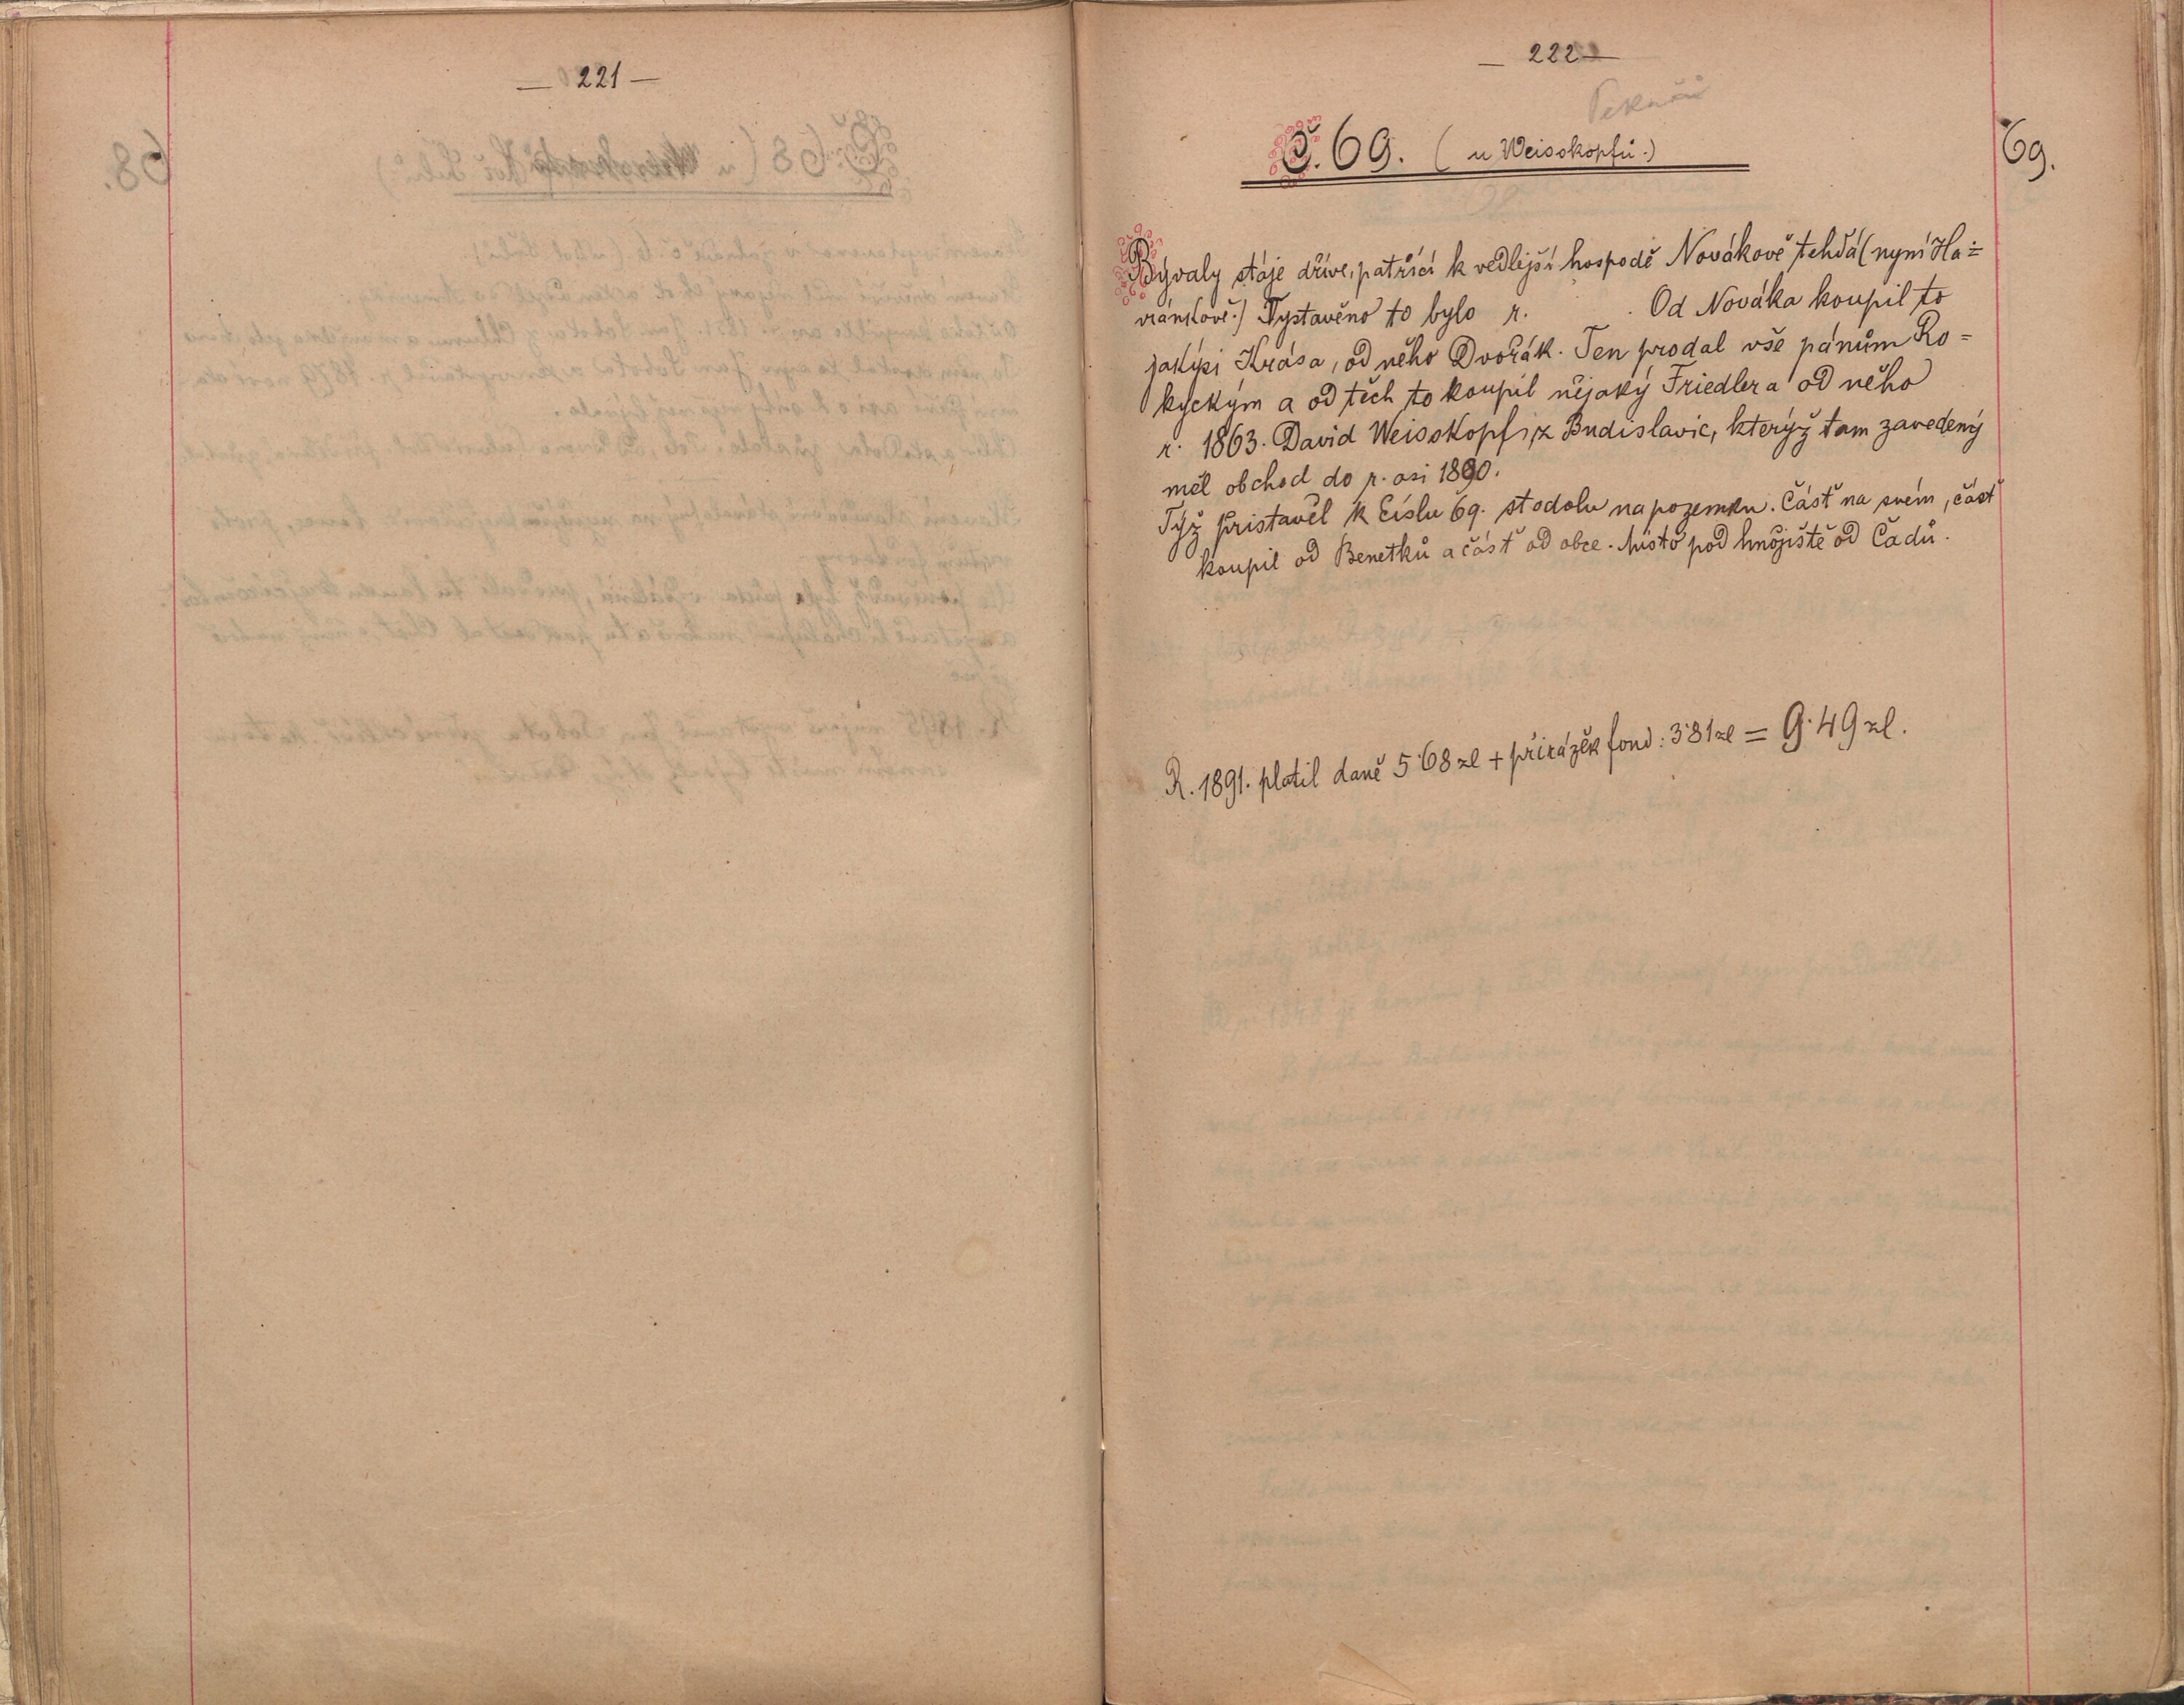 — 221 —
— 222 —
Č. 69. (u Weisskopfů.)
69.
Bývaly stáje dříve, patřící k vedlejší hospodě Novákově tehdá (nyní Ha=
vránkově.) Vystavěno to bylo r. . Od Nováka koupil to
jakýsi Krása, od něho Dvořák. Ten prodal vše pánům Ro=
kyckým a od těch to koupil nějaký Friedler a od něho
r. 1863. David Weisskopf z Budislavic, kterýž tam zavedený
měl obchod do r. asi 1890.
Týž přistavěl k číslu 69. stodolu na pozemku. Část na svém, část
koupil od Benetků a část od obce. Místo pod hnojiště od Čadů.
R. 1891. platil daně 5·68 zl + přirážek fond: 3·81 zl = 9·49 zl.